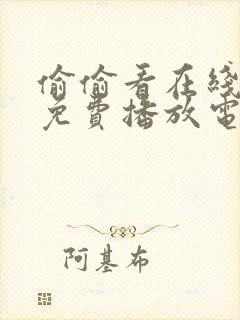 偷偷看在綫
免費播放電
阿基布